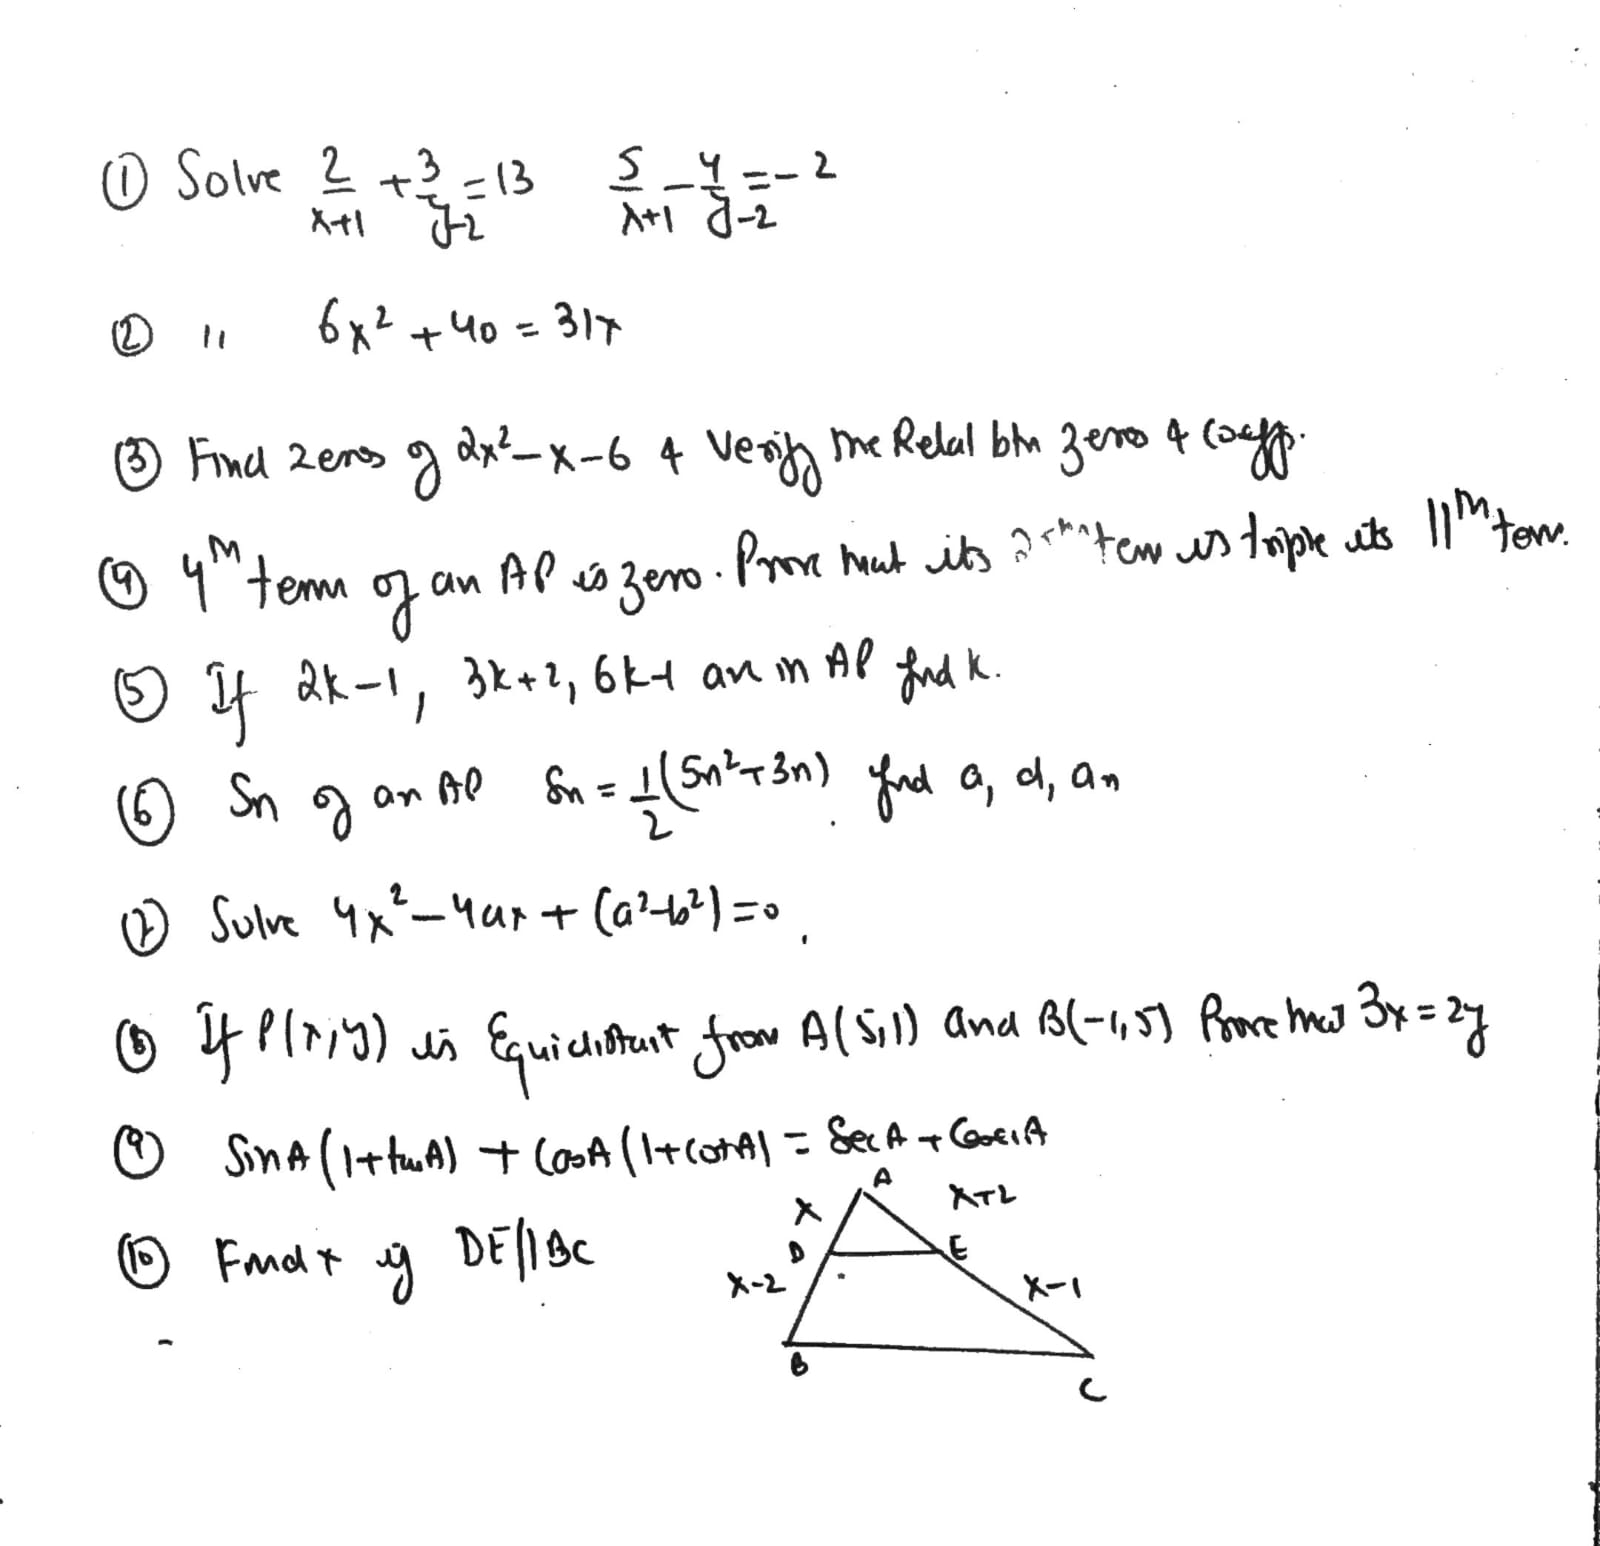 ① Solve 2/x+1 + 3/y-2 = 13   5/x+1 - 4/y-2 = -2
② 11 6x² + 40 = 31x
③ Find zeros of 2x²-x-6 & Verify the Relat btn zeros & Coeff.
④ 4th term of an AP is zero. Prove that its term is triple its 11th term.
⑤ If 2k-1, 3k+2, 6k-1 are in AP find k.
⑥ Sn of an AP Sn = 1/2 (5n²+3n) find a, d, an
⑦ Solve 4x²-4ax + (a²-b²)=0.
⑧ If P(x,y) is Equidistant from A(5,1) and B(-1,5) Prove that 3x = 2y
⑨ SinA (1+tanA) + CosA (1+cotA) = SecA + CosecA
⑩ Find x if DE||BC
A
x
x+2
D
E
x-2
x-1
B
C